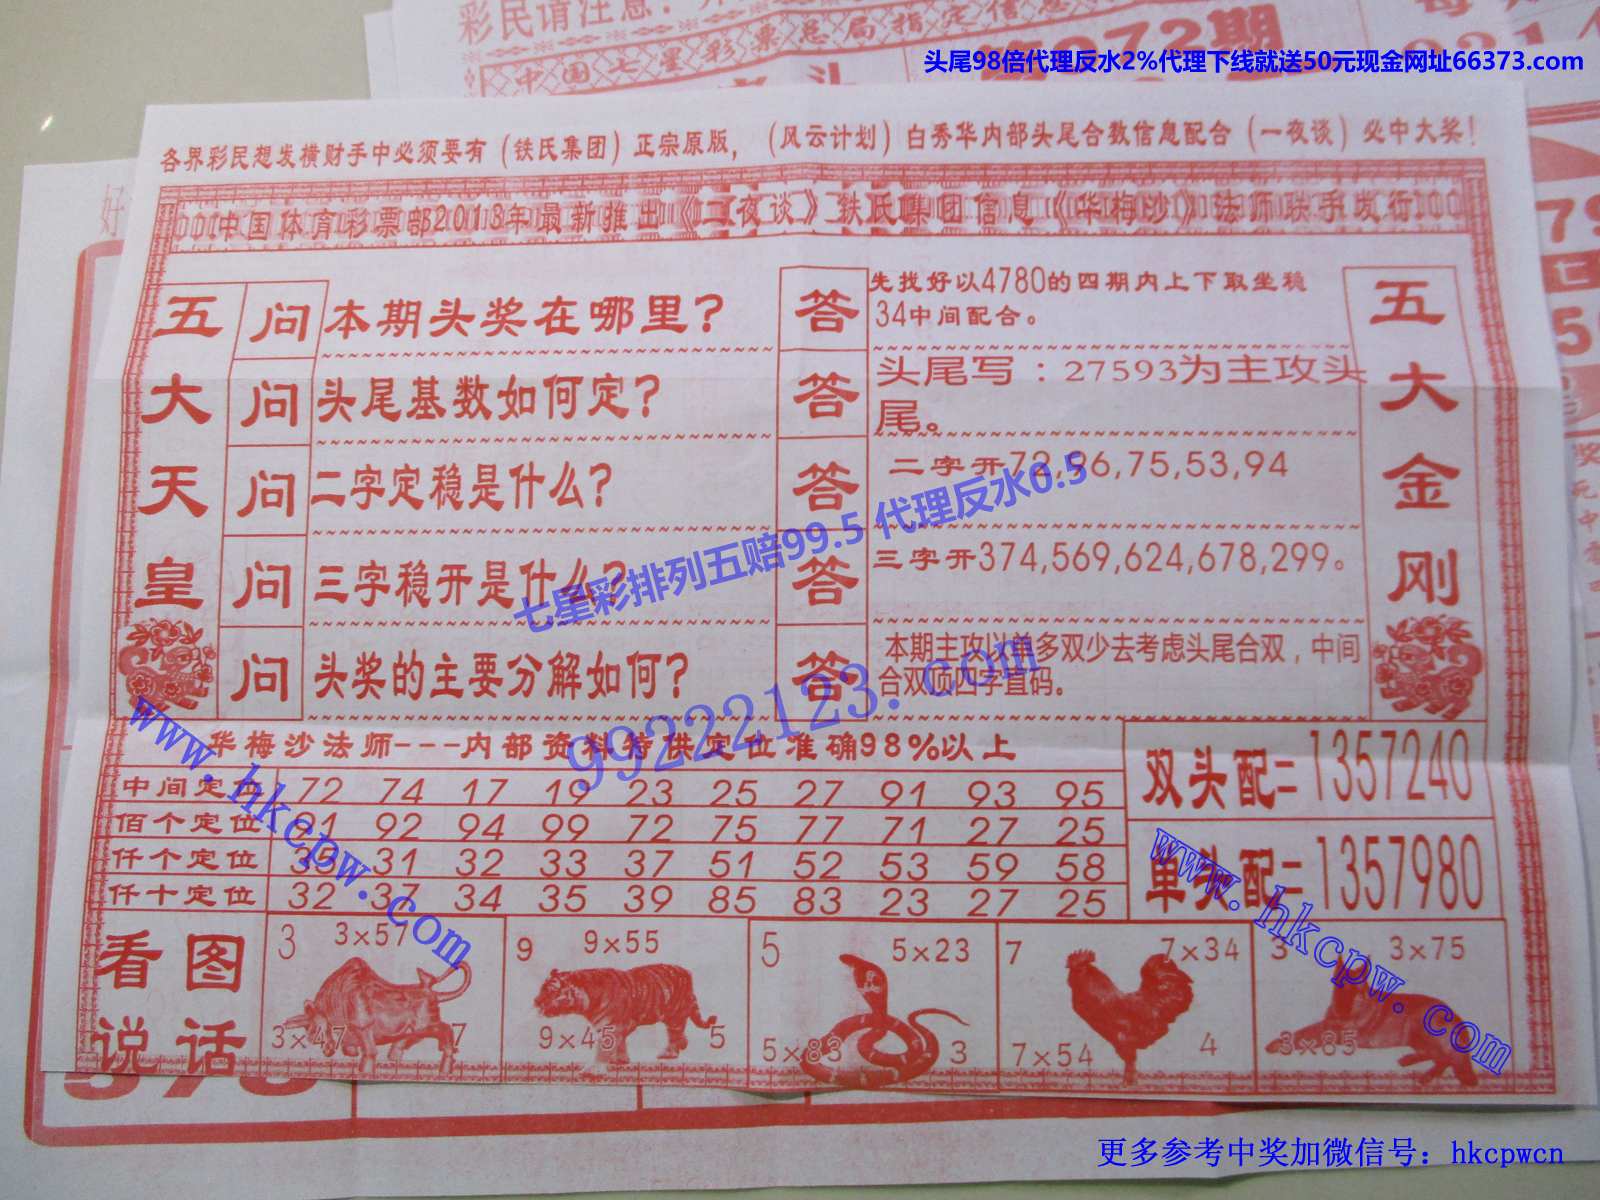 彩民请注意：
中国七星彩票总局指定信息
第072期
头尾98倍代理反水2%代理下线就送50元现金网址66373.com
各界彩民想发横财手中必须要有（铁氏集团）正宗原版，（风云计划）白秀华内部头尾合数信息配合（一夜谈）必中大奖！
中国体育彩票邮2013年最新推出《二夜谈》铁氏集团信息《华梅沙》法师联手发行
五大天皇
问 本期头奖在哪里？
答 先找好以4780的四期内上下取坐稳
34中间配合。
问 头尾基数如何定？
答 头尾写：27593为主攻头
尾。
问 二字定稳是什么？
答 二字开72,96,75,53,94
问 三字稳开是什么？
答 三字开374,569,624,678,299。
问 头奖的主要分解如何？
答 本期主攻以单多双少去考虑头尾合双，中间
合双顶四字直码。
五大金刚
七星彩排列五赔99.5 代理反水0.5
99222123.com
www.hkcpw.com
华梅沙法师---内部资料特供定位准确98%以上
中间定位 72 74 17 19 23 25 27 91 93 95
佰个定位 91 92 94 99 72 75 77 71 27 25
仟个定位 35 31 32 33 37 51 52 53 59 58
仟十定位 32 37 34 35 39 85 83 23 27 25
双头配=1357240
单头配=1357980
www.hkcpw.com
看图
说话
3 3×57
3×47 7
9 9×55
9×45 5
5 5×23
5×83 3
7 7×34
7×54 4
3 3×75
3×85
更多参考中奖加微信号：hkcpwcn